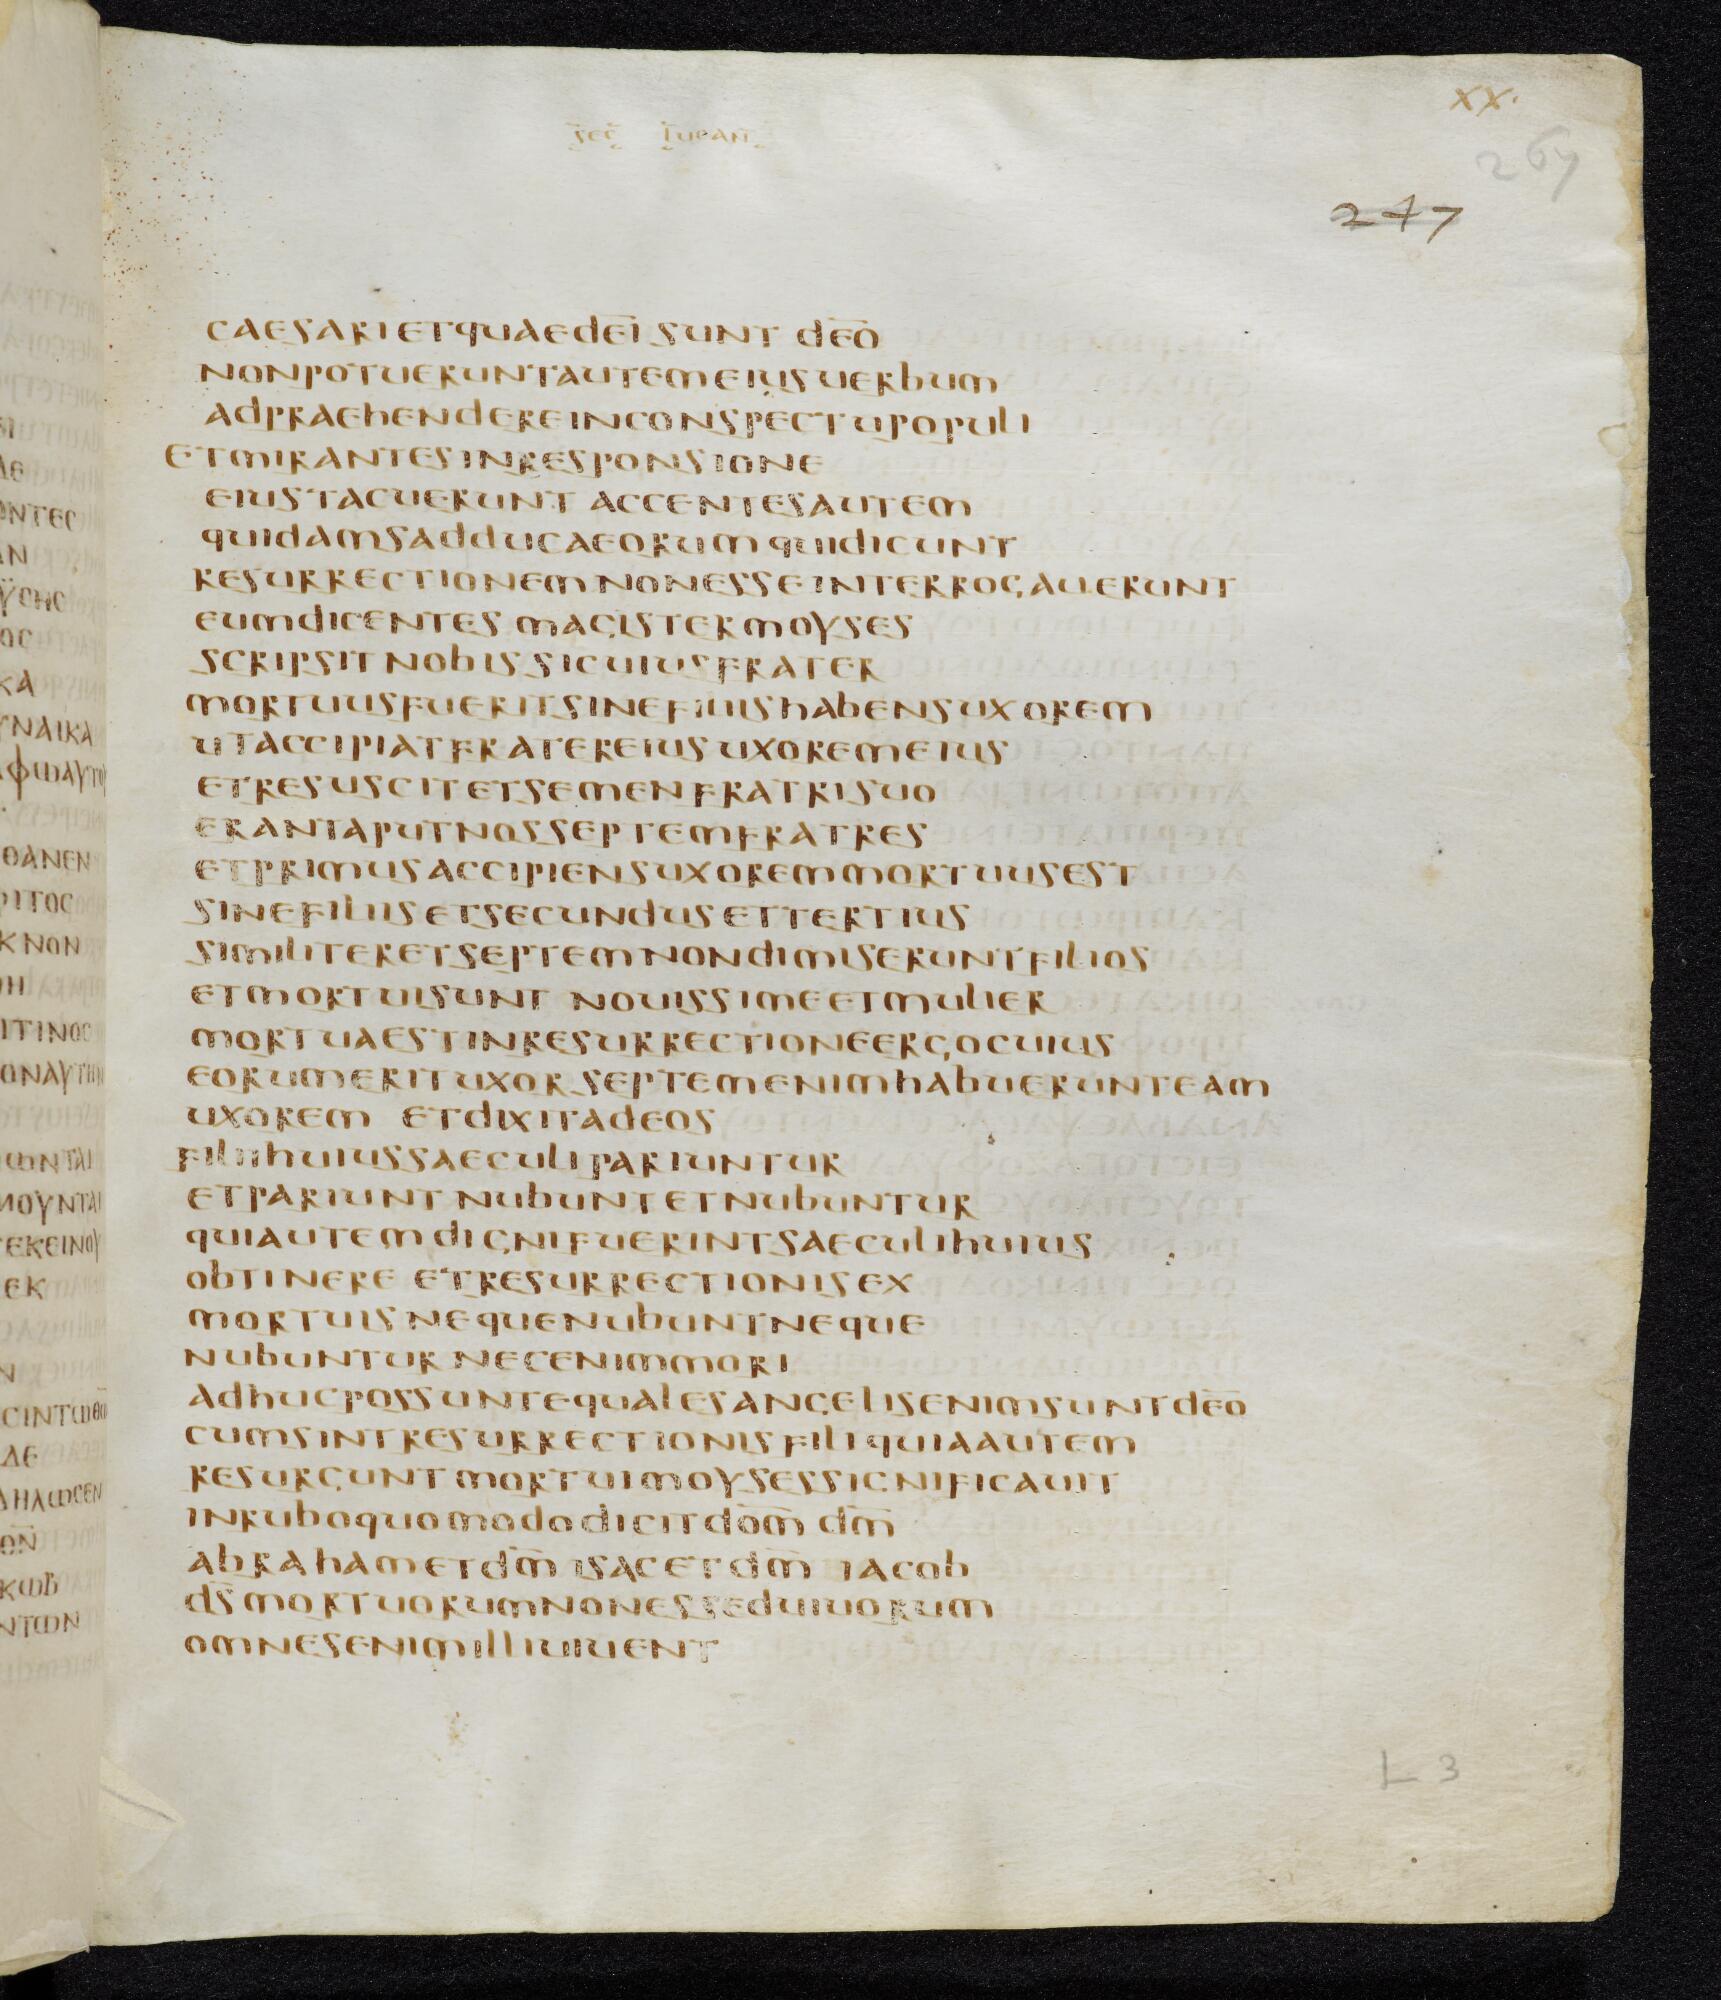 XX.
267
247
sec lucan
CAESARIETQUAEdEI SUNT dEO
NONPOTUERUNTAUTEMEIUSUERbUM
AdPRAEhENdEREINCONSPECTUPOPULI
ETMIRANTESINRESPONSIONE
EIUSTACUERUNT ACCENTESAUTEM
QUIdAMSAddUCAEORUMQUIdICUNT
RESURRECTIONEMNONESSEINTERROGAUERUNT
EUMdICENTES MAGISTERMOYSES
SCRIPSITNObISSICUIUSFRATER
MORTUUSFUERITSINEFILIIShAbENSUXOREM
UTACCIPIATFRATEREIUSUXOREMEIUS
ETRESUSCITETSEMENFRATRISUO
ERANTAPUTNOSSEPTEMFRATRES
ETPRIMUSACCIPIENSUXOREMMORTUUSEST
SINEFILIISETSECUNdUSETTERTIUS
SIMILITERETSEPTEMNONdIMISERUNTFILIOS
ETMORTUISUNT NOUISSIMEETMULIER
MORTUAESTINRESURRECTIONEERGOCUIUS
EORUMERITUXOR SEPTEMENIMhAbUERUNTEAM
UXOREM ETdIXITAdEOS
FILIIhUIUSSAECULIPARIUNTUR
ETPARIUNT NUbUNTETNUbUNTUR
QUIAUTEMdIGNIFUERINTSAECULIhUIUS
ObTINERE ETRESURRECTIONISEX
MORTUISNEQUENUbUNTNEQUE
NUbUNTUR NECENIMMORI
AdhUCPOSSUNTEQUALESANGELISENIMSUNTdEO
CUMSINTRESURRECTIONISFILIQUIAAUTEM
RESURGUNTMORTUIMOYSESSIGNIFICAUIT
INRUbOQUOMOdOdICITdO̅M̅ d̅M̅
AbRAhAMETd̅M̅ ISACETd̅M̅ IACOb
d̅S̅MORTUORUMNONESSEdUIUORUM
OMNESENIMILLIUIUENT
L 3